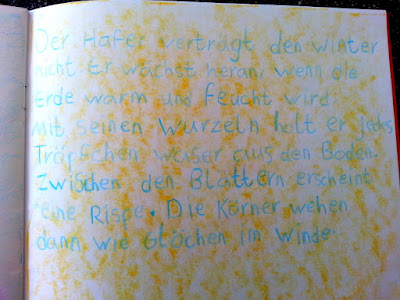 Der Hafer verträgt den winter
nicht Er wächst heran, wenn die
Erde warm und feucht wird.
Mit seinen Wurzeln holt er jedes
Tröpfchen weiser aus den Boden.
Zwischen den Blättern erscheint
eine Rispe. Die Körner wehen
dann wie Glöchen im Winde.